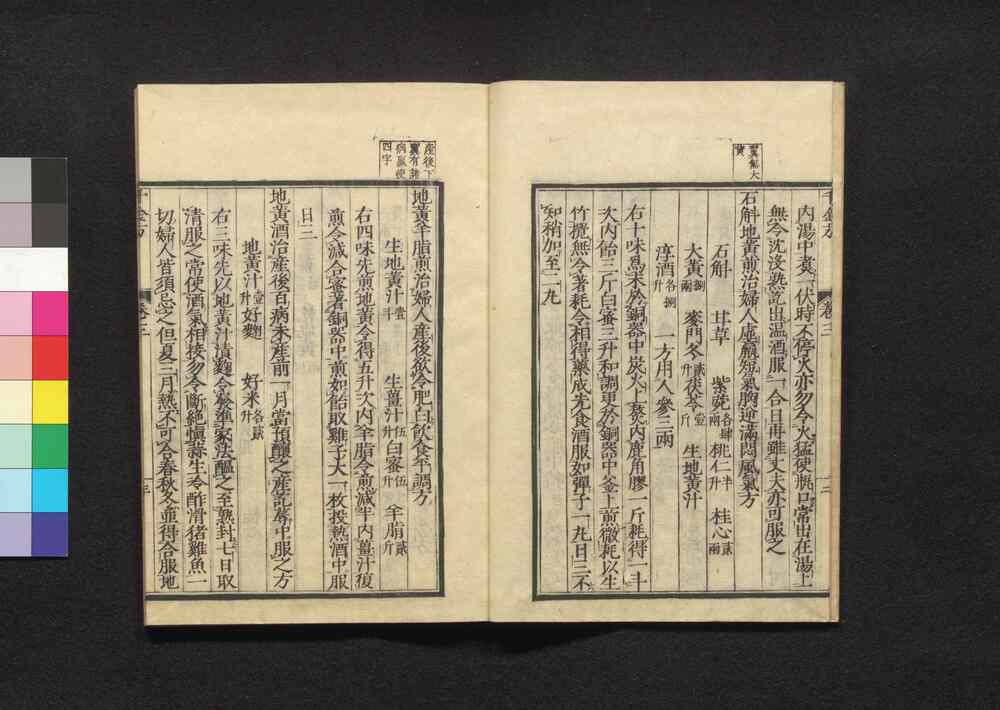 千金方
卷三
十三
翼無大
黃
内湯中煑一伏時不停火亦勿令火猛使甁口常出在湯上
無令沈沒熟訖出温酒服一合日再雖丈夫亦可服之
石斛地黃煎治婦人虛羸短氣胸逆滿悶風氣方
石斛 甘草 紫菀各肆兩 桃仁半升 桂心貳兩
大黃捌兩 麥門冬貳升 茯苓壹斤 生地黃汁
淳酒各捌升 一方用人參三兩
右十味爲末於銅器中炭火上熬内鹿角膠一斤耗得一斗
次内飴三斤白蜜三升和調更於銅器中釜上煎微耗以生
竹攪無令著耗令相得藥成先食酒服如彈子一丸日三不
知稍加至二丸
產後下
翼有諸
病羸使
四字
地黃羊脂煎治婦人產後欲令肥白飲食平調方
生地黃汁壹斗 生薑汁伍升 白蜜伍升 羊脂貳斤
右四味先煎地黃令得五升次内羊脂令煎減半内薑汁復
煎令減合蜜著銅器中煎如飴取雞子大一枚投熱酒中服
日三
地黃酒治產後百病未產前一月當預釀之產訖蓐中服之方
地黃汁壹升 好麴 好米各貳升
右三味先以地黃汁漬麴令發準家法醞之至熟封七日取
清服之常使酒氣相接勿令斷絕愼蒜生冷酢滑猪雞魚一
切婦人皆須忌之但夏三月熱不可合春秋冬並得合服地
千金方
卷三